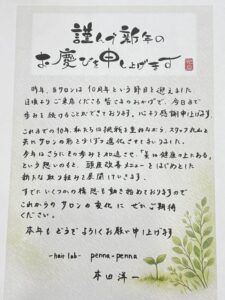 謹んで新年の
お慶びを申し上げます
昨年、当サロンは10周年という節目を迎えました
日頃よりご来店くださる皆さまのおかげで、今日まで
歩みを続けることができております。心より感謝申し上げます。
これまでの10年、私たちは挑戦を重ねながら、スタッフ
共にサロンの形と少しずつ進化させてまいりました。
今年はさらにその歩みを加速させ、「美は健康の上にある」
という想いのもと、頭皮改善メニューをはじめとした
新たな取り組みと展開していきます。
すでにいくつかの構想も動き始めておりますので
これからのサロンの変化に ぜひご期待
ください。
本年も どうぞよろしくお願い申し上げます
-hair lab- penna-penna
本田 洋一